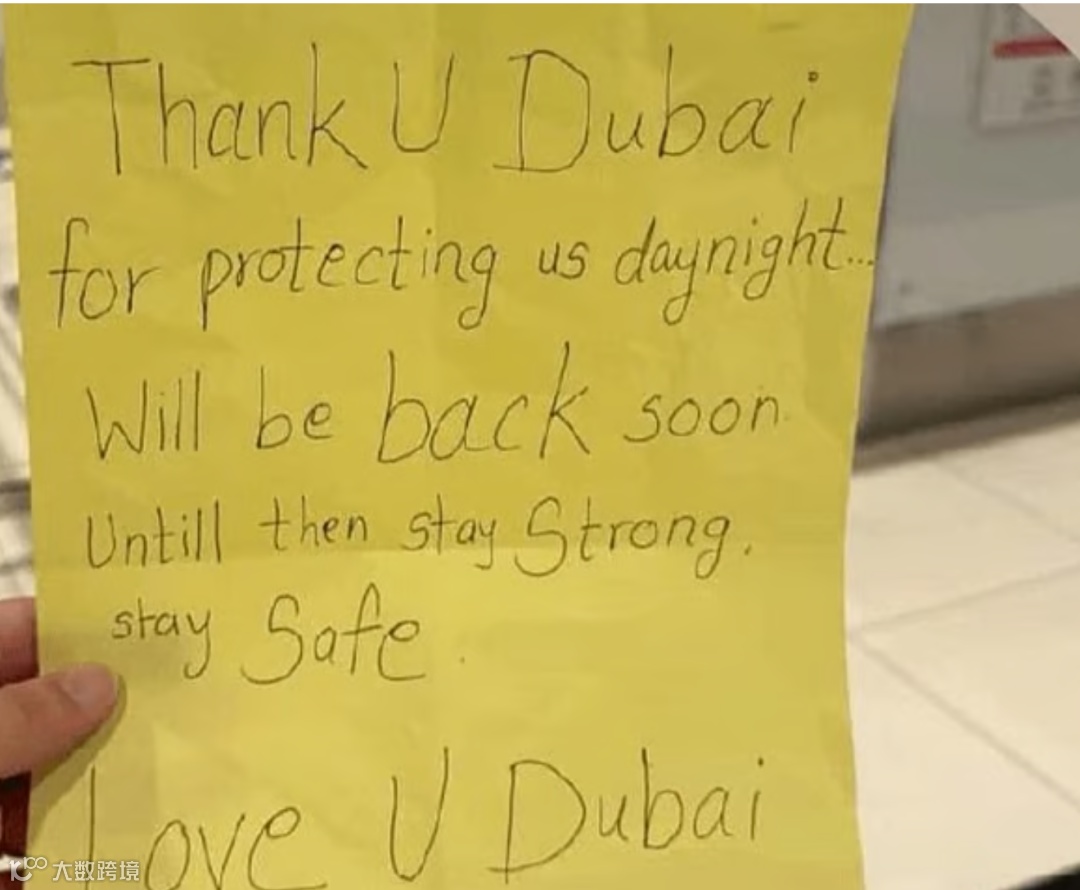 Thank U Dubai
for protecting us daynight...
Will be back soon.
Untill then stay Strong.
stay Safe.
Love U Dubai
大数跨境